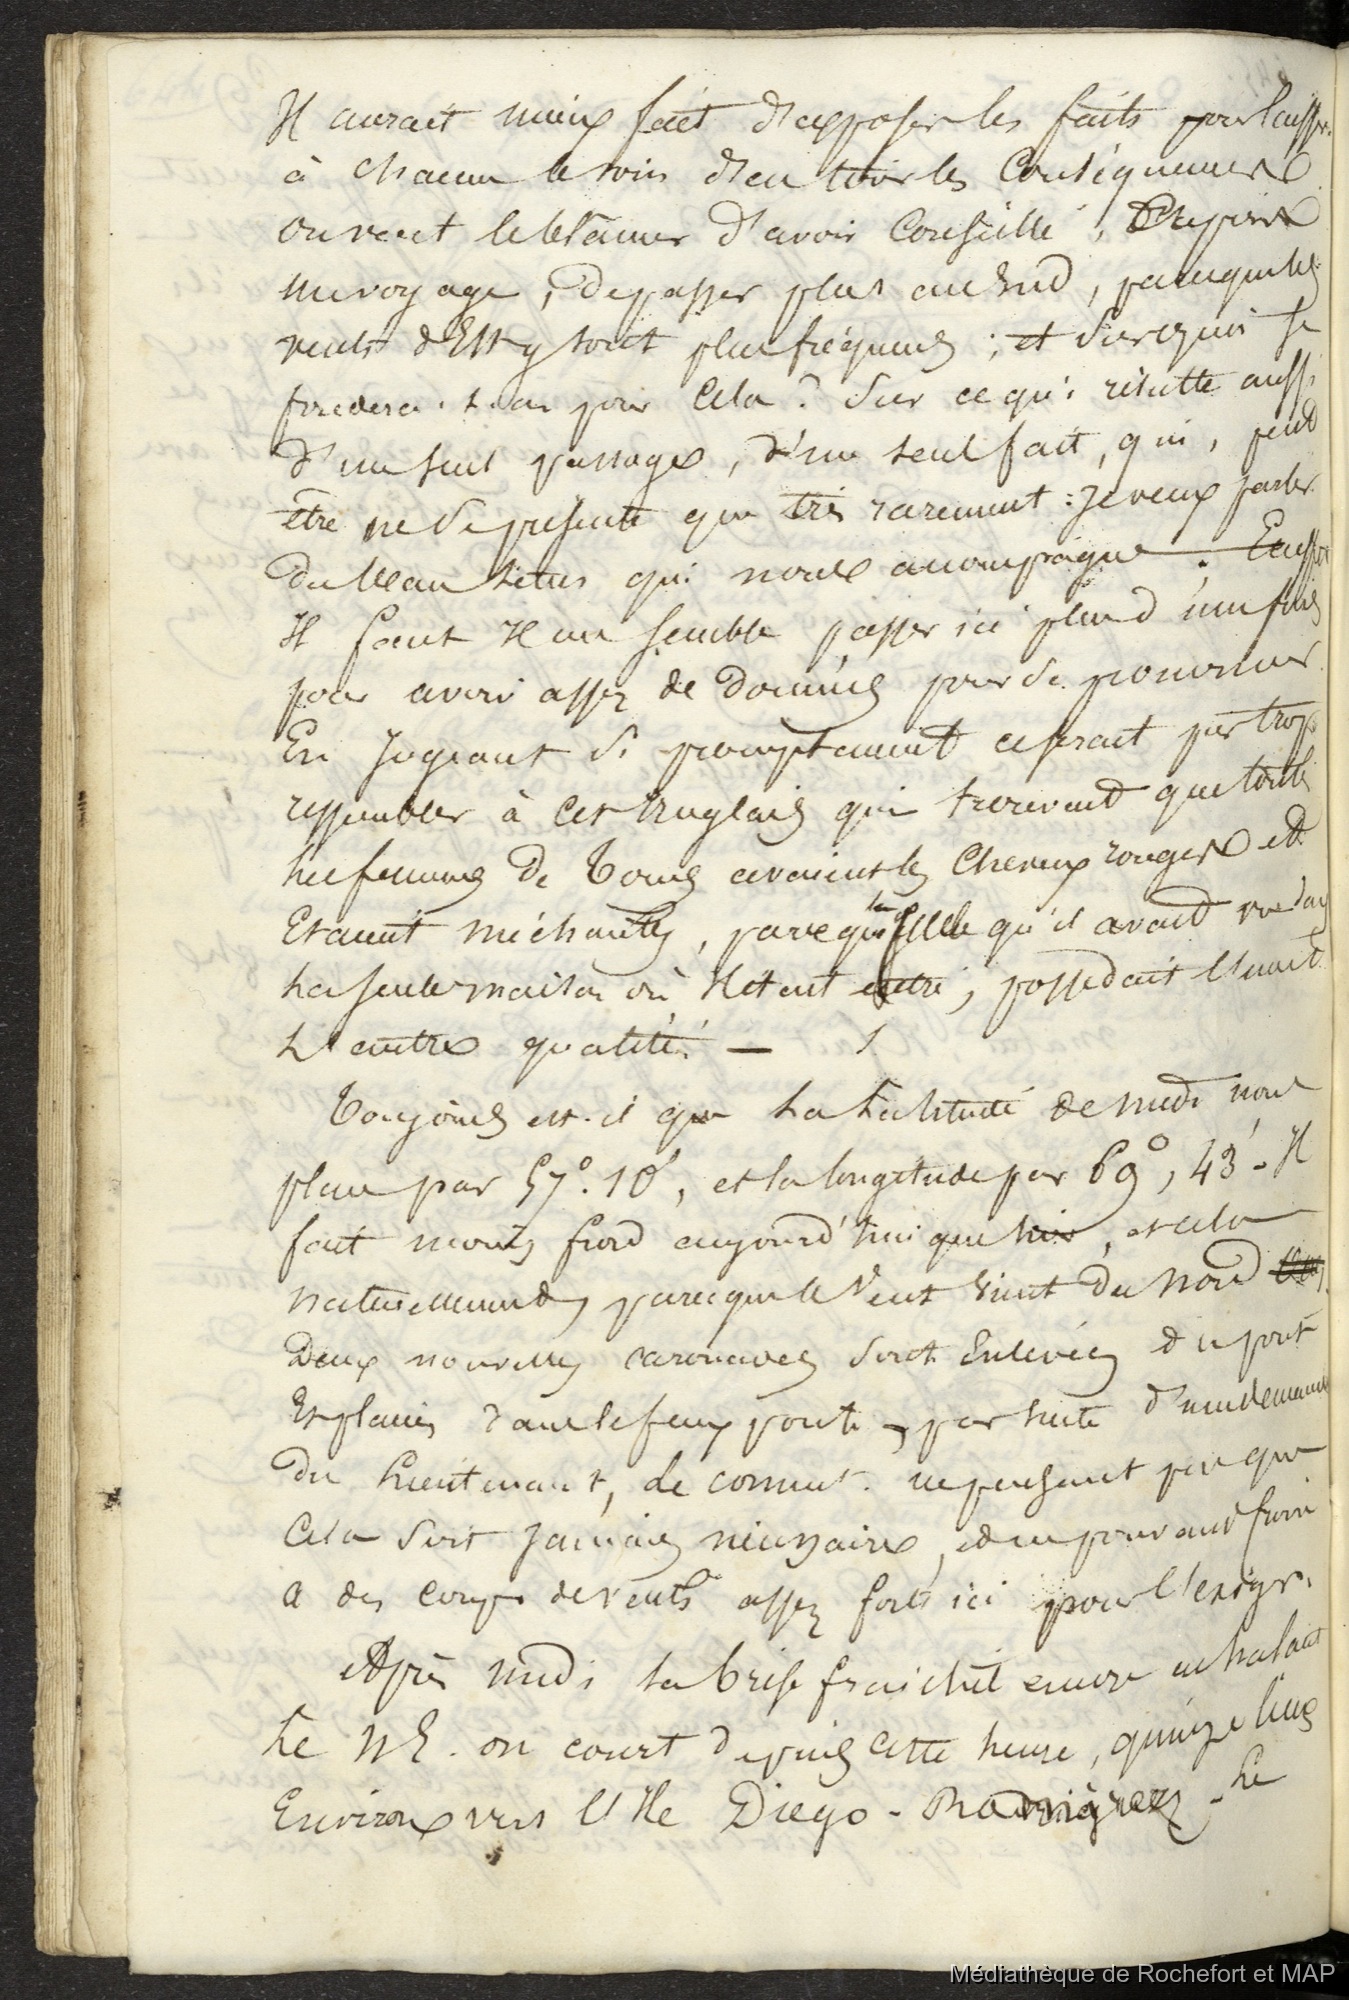 Il aurait mieux fait d'exposer les faits pour laisser
à chacun le soin d'en tirer les Conséquences
on veut le blâmer d'avoir Conseillé,
un voyage, de passer plus au Sud, parceque les
vents d'Est y sont plus fréquens ; et sur quoi se
fondera-t-on pour Cela ? Sur ce qui résulte aussi
d'un seul passage, d'un seul fait, qui, peut
être ne se présente que très rarement : je veux parler
du beau tems qui nous accompagne.
Il faut il me semble passer ici plus d'une fois
pour avoir assez de données pour se prononcer.
En Jugeant si promptement ce serait par trop
ressembler à cet Anglais qui trouvait que toutes
les femmes de Tours avaient les Cheveux rouges et
Etaient méchantes, parceque la seule qu'il avait vue dans
la seule maison où il était entré, possédait l'une et
l'autre qualité. —
Toujours est-il que la Latitude de midi nous
place par 57°. 10', et la longitude par 69°, 43'. Il
fait moins froid aujourd'hui que hier, et cela
naturellement, parceque le Vent vient du Nord
Deux nouvelles caronades sont Enlevées du pont
Et placées dans le faux pont, par suite d'une demande
du Lieutenant, le commt. ne pensant pas que
Cela soit jamais nécessaire, et ne pouvant
a des coups de vents assez forts ici pour l'exiger.
Après midi la brise fraichit encore en halant
le NE. on court depuis cette heure, quinze lieues
Environ vers l'Ile Diego-Rodriguez. Le
Médiathèque de Rochefort et MAP